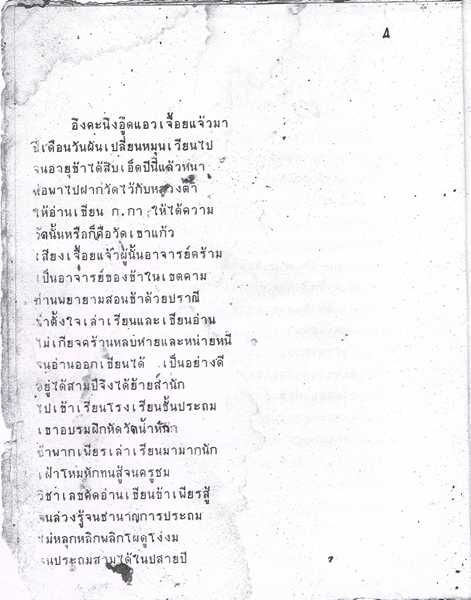 ๘
อึงคะนึงอู๊ดแอวเจื้อยแจ้วมา
ปีเดือนวันผันเปลี่ยนหมุนเวียนไป
จนอายุข้าได้สิบเอ็ดปีนี้แล้วหนา
พ่อพาไปฝากวัดไว้กับหลวงตา
ให้อ่านเขียน ก.กา ให้ได้ความ
วัดนั้นหรือก็คือวัดเขาแก้ว
เสียงเจื้อยแจ้วผู้นั้นอาจารย์คร้าม
เป็นอาจารย์ของข้าในเขตคาม
ท่านพยายามสอนข้าด้วยปราณี
ข้าตั้งใจเล่าเรียนและเขียนอ่าน
ไม่เกียจคร้านหลบหายและหน่ายหนี
จนอ่านออกเขียนได้ เป็นอย่างดี
อยู่ได้สามปีจึงได้ย้ายสำนัก
ไปเข้าเรียนโรงเรียนชั้นประถม
เขาอบรมฝึกหัดวัดน้ำหัก
ข้าพากเพียรเล่าเรียนมามากนัก
เฝ้าโหมหักทนสู้จนครูชม
วิชาเลขคัดอ่านเขียนข้าเพียรสู้
จนล่วงรู้จนชำนาญการประถม
ไม่หลุกหลิกพลิกโผดูโง่งม
จนประถมสามได้ในปลายปี